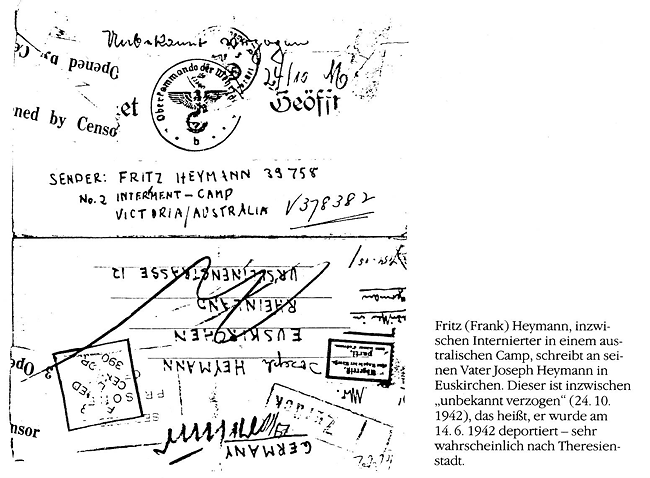 Unbekannt verzogen
Opened by Ce
ned by Censo
et
Oberkommando der Wehrm
b
24/10
Geöff
SENDER: FRITZ HEYMANN 39758
No. 2 INTERMENT-CAMP
VICTORIA/AUSTRALIA V378382
URSULINENSTRASSE 12
RHEINLAND
EUSKIRCHEN
Joseph HEYMANN
GERMANY
Zurück
Ope
nsor
Fritz (Frank) Heymann, inzwi-
schen Internierter in einem aus-
tralischen Camp, schreibt an sei-
nen Vater Joseph Heymann in
Euskirchen. Dieser ist inzwischen
„unbekannt verzogen“ (24. 10.
1942), das heißt, er wurde am
14. 6. 1942 deportiert – sehr
wahrscheinlich nach Theresien-
stadt.